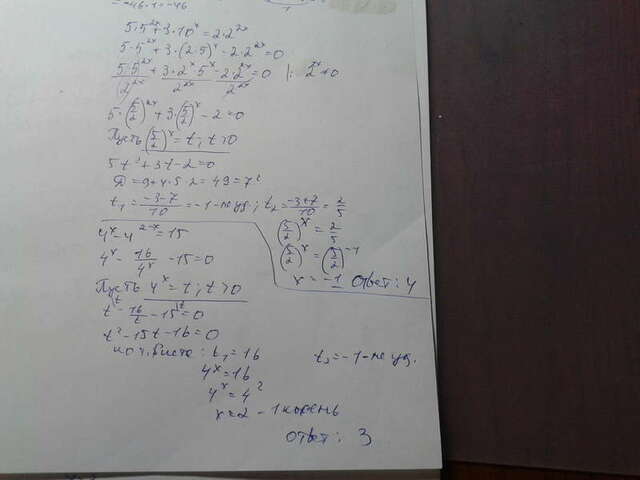 = -46·1 = -46
5·5^2x + 3·10^x = 2·2^2x
5·5^2x + 3·(2·5)^x - 2·2^2x = 0
5·5^2x/2^2x + 3·2^x·5^x/2^2x - 2·2^2x/2^2x = 0 |: 2^2x ≠ 0
5·(5/2)^2x + 3·(5/2)^x - 2 = 0
Пусть (5/2)^x = t, t > 0
5t² + 3t - 2 = 0
Д = 9 + 4·5·2 = 49 = 7²
t₁ = (-3-7)/10 = -1 - не уд; t₂ = (-3+7)/10 = 2/5
(5/2)^x = 2/5
(5/2)^x = (5/2)^-1
x = -1 Ответ: 4
4^x - 4^2-x = 15
4^x - 16/4^x - 15 = 0
Пусть 4^x = t, t > 0
t^(t - 16/t - 15^(t = 0
t² - 15t - 16 = 0
по т. Виета: t₁ = 16 t₂ = -1 - не уд.
4^x = 16
4^x = 4²
x = 2 - 1 корень
Ответ: 3